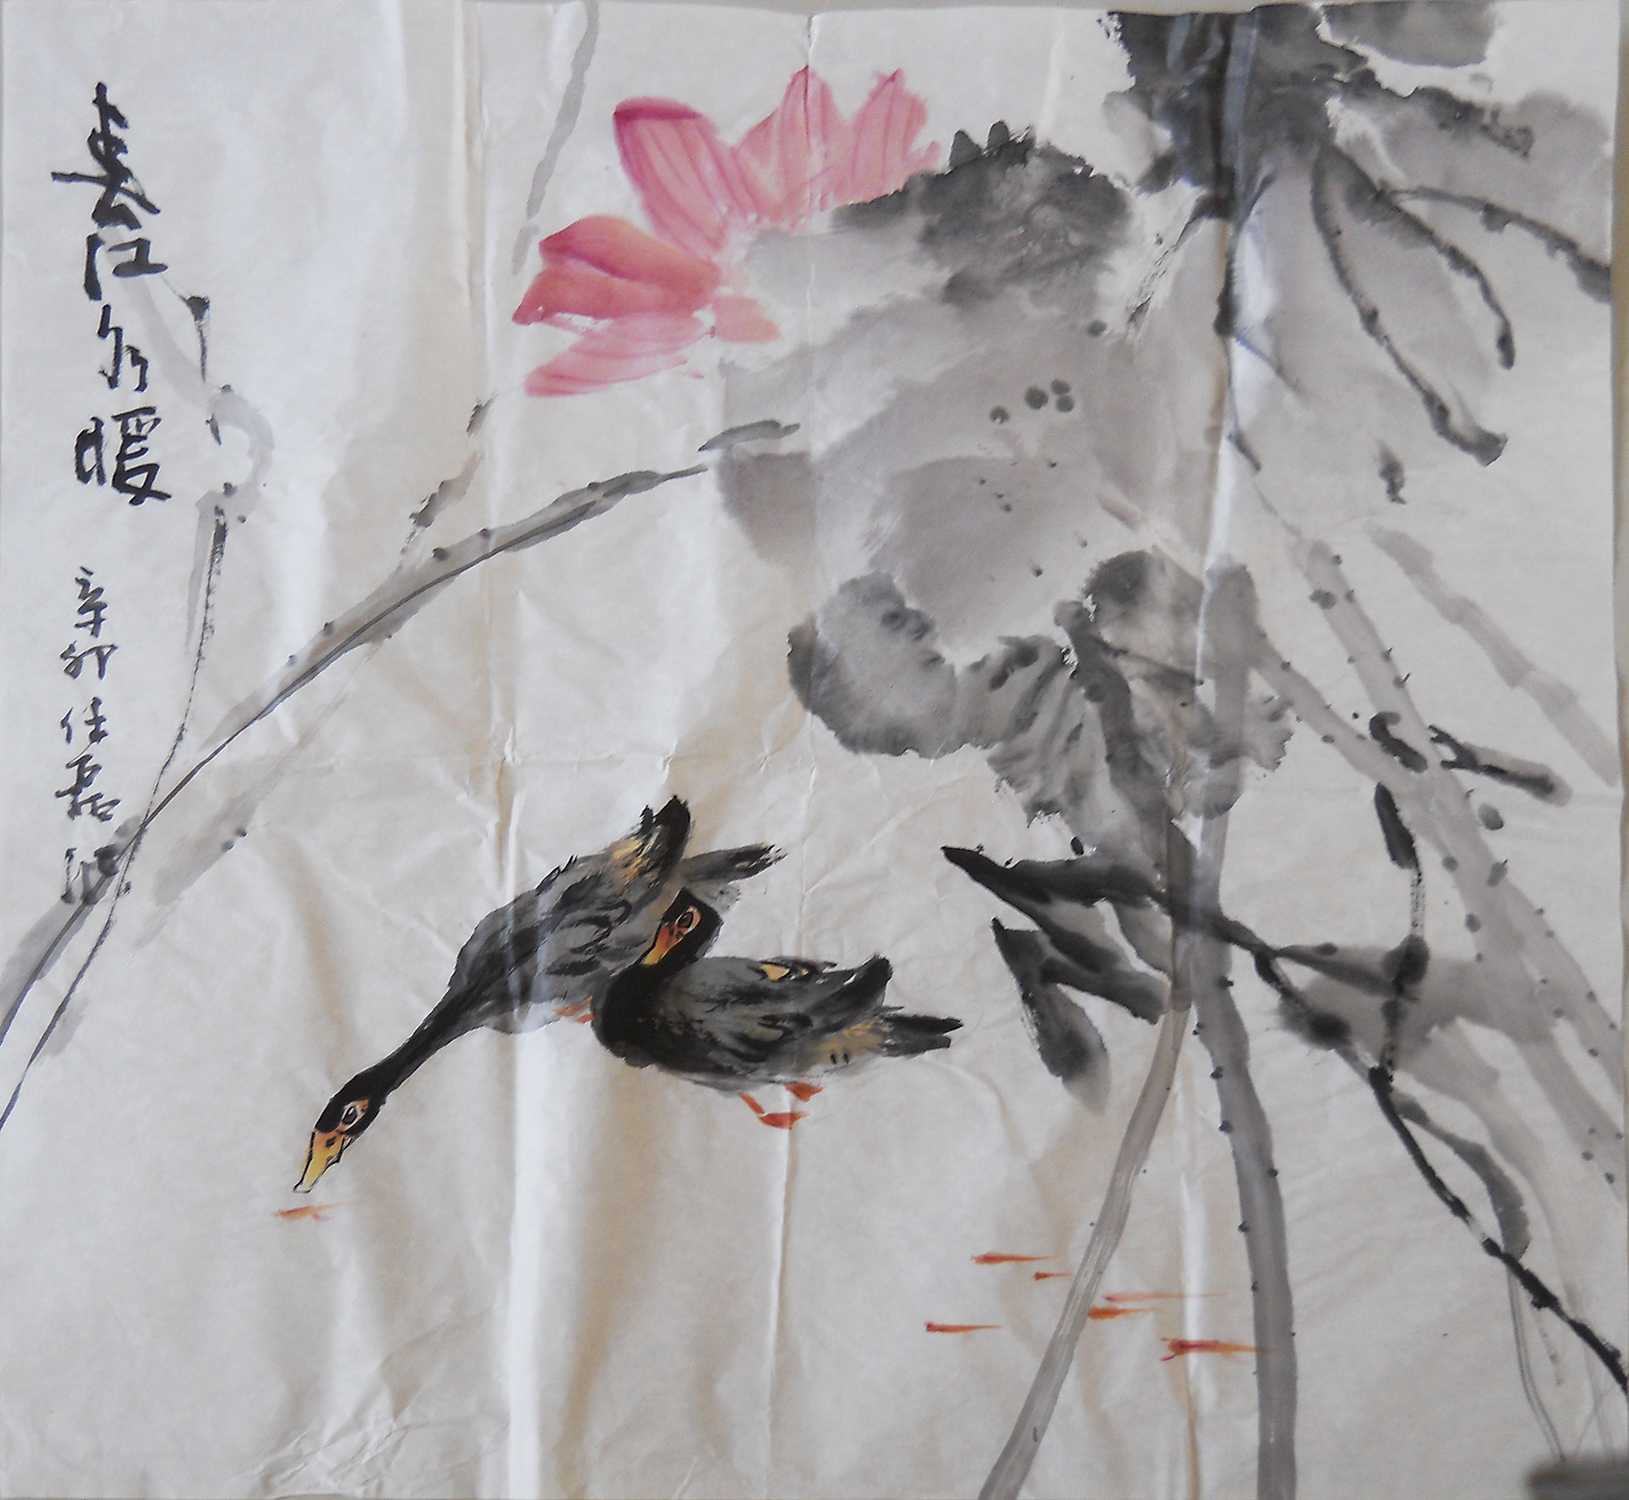 春江水暖
辛卯 任磊